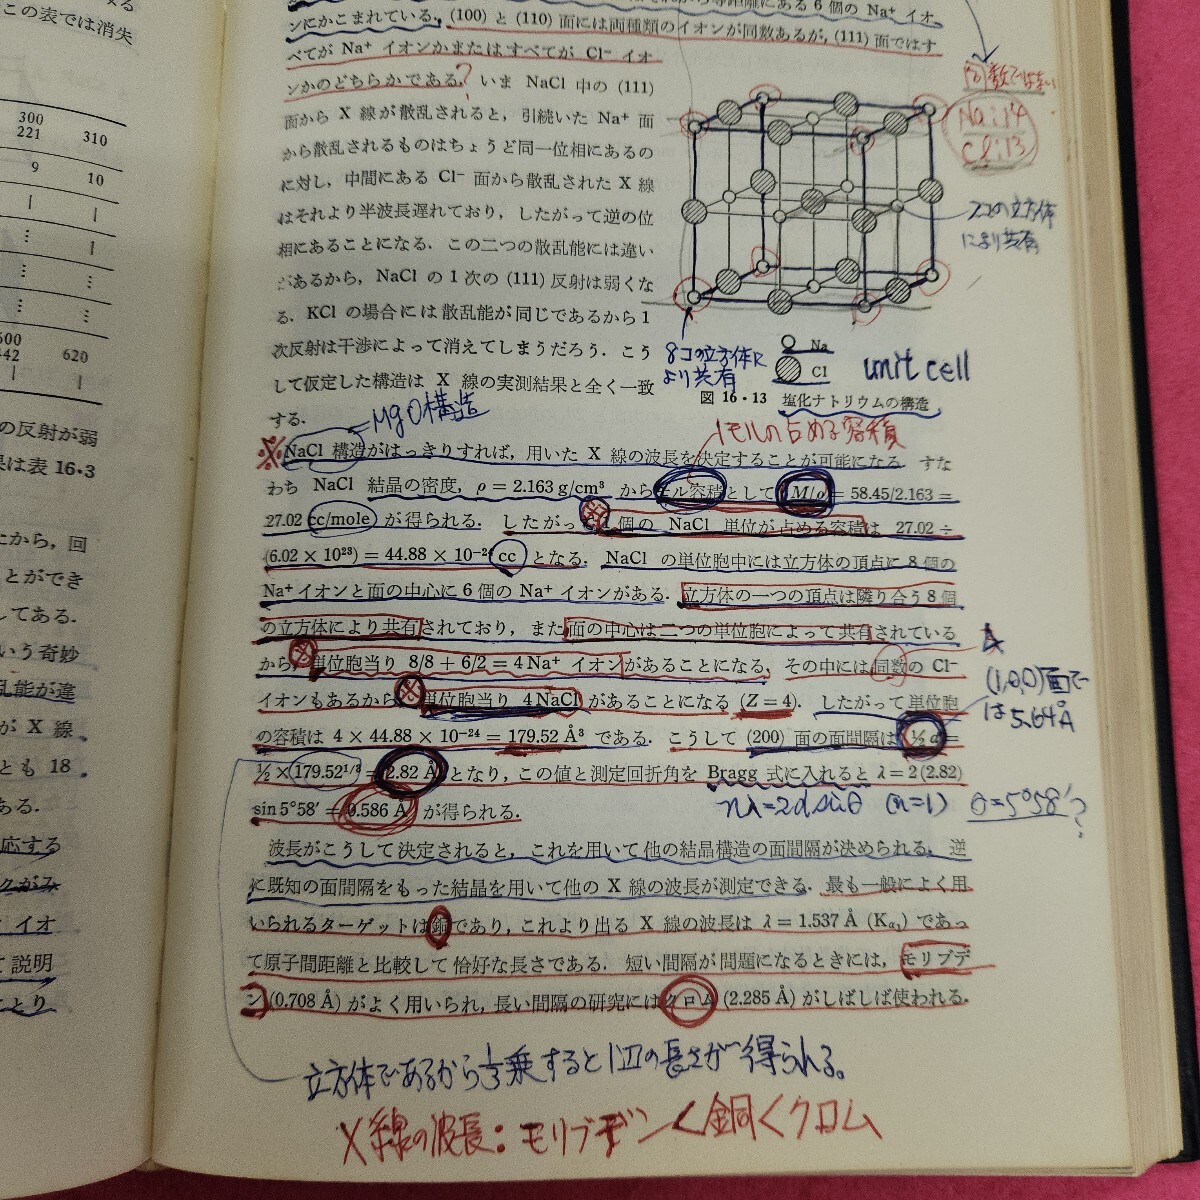 この表では消失
300
221 310
9 10
600
442 620
の反射が弱
果は表 16・3
たから，回
とができ
してある．
いう奇妙
乱能が違
が X 線
とも 18
ある．
応する
イオ
て説明
ことり
にある 6 個の Na⁺ イオ
ンにかこまれている．(100) と (110) 面には両種類のイオンが同数あるが，(111) 面ではす
べてが Na⁺ イオンかまたはすべてが Cl⁻ イオ
ンかのどちらかである．? いま NaCl 中の (111)
面から X 線が散乱されると，引続いた Na⁺ 面
から散乱されるものはちょうど同一位相にあるの
に対し，中間にある Cl⁻ 面から散乱された X 線
はそれより半波長遅れており，したがって逆の位
相にあることになる．この二つの散乱能には違い
があるから，NaCl の 1 次の (111) 反射は弱くな
る．KCl の場合には散乱能が同じであるから 1
次反射は干渉によって消えてしまうだろう．こう
して仮定した構造は X 線の実測結果と全く一致
する．
MgO構造
同数ではない
Na:14
Cl:13
2コの立方体
により共有
8コの立方体に
より共有
Na
Cl
unit cell
図 16・13 塩化ナトリウムの構造
1モルの占める容積
※NaCl 構造がはっきりすれば，用いた X 線の波長を決定することが可能になる．すな
わち NaCl 結晶の密度，ρ = 2.163 g/cm³ からモル容積として M/ρ = 58.45/2.163 =
27.02 cc/mole が得られる．したがって 1 個の NaCl 単位が占める容積は 27.02 ÷
(6.02 × 10²³) = 44.88 × 10⁻²⁴ cc となる．NaCl の単位胞中には立方体の頂点に 8 個の
Na⁺ イオンと面の中心に 6 個の Na⁺ イオンがある．立方体の一つの頂点は隣り合う 8 個
の立方体により共有されており，また面の中心は二つの単位胞によって共有されている
から，単位胞当り 8/8 + 6/2 = 4 Na⁺ イオンがあることになる，その中には同数の Cl⁻
イオンもあるから単位胞当り 4 NaCl があることになる (Z = 4)．したがって単位胞
の容積は 4 × 44.88 × 10⁻²⁴ = 179.52 Å³ である．こうして (200) 面の面間隔は ½ a =
½ × 179.52¹ᐟ³ = 2.82 Å となり，この値と測定回折角を Bragg 式に入れると λ = 2 (2.82)
sin 5°58′ = 0.586 Å が得られる．
(1,0,0)面で
は5.64Å
nλ=2d sinθ (n=1) θ=5°58′?
波長がこうして決定されると，これを用いて他の結晶構造の面間隔が決められる．逆
に既知の面間隔をもった結晶を用いて他の X 線の波長が測定できる．最も一般によく用
いられるターゲットは銅であり，これより出る X 線の波長は λ = 1.537 Å (Kα₁) であっ
て原子間距離と比較して恰好な長さである．短い間隔が問題になるときには，モリブデ
ン (0.708 Å) がよく用いられ，長い間隔の研究にはクロム (2.285 Å) がしばしば使われる．
立方体であるから⅓乗すると1辺の長さが得られる。
X線の波長：モリブデン<銅<クロム